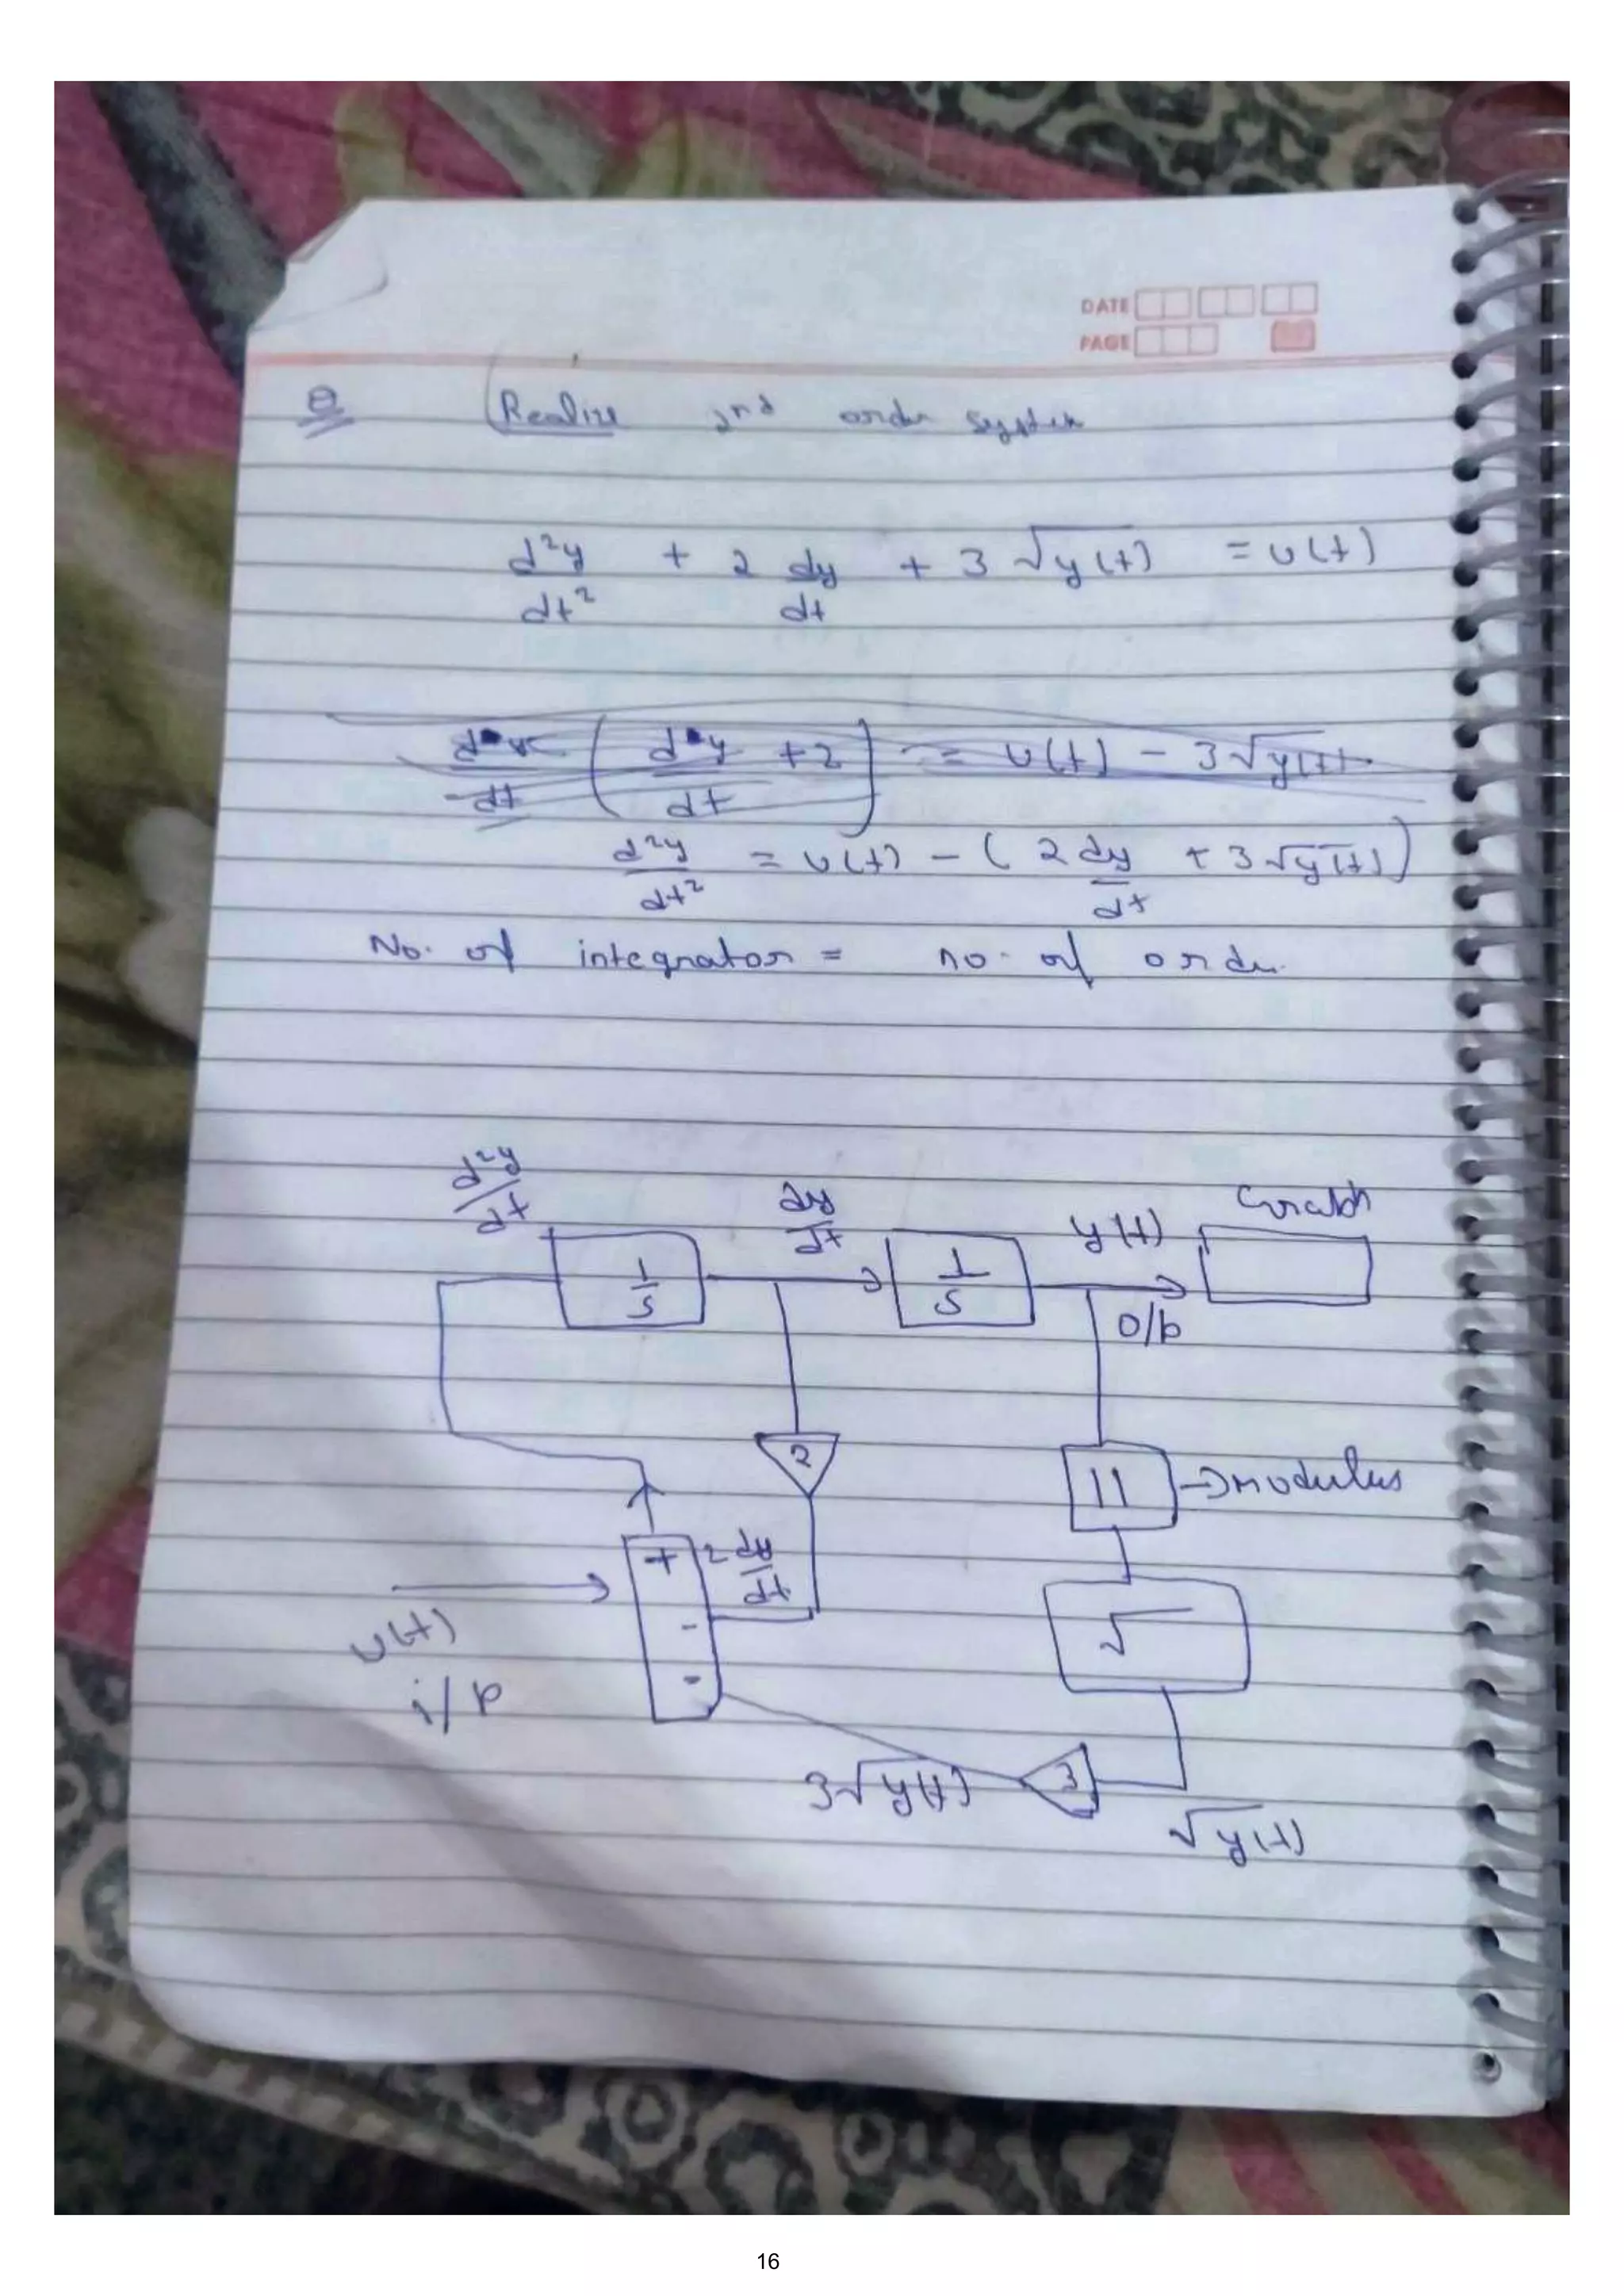 DATE
PAGE
Q Realize 2nd order system
d²y/dt² + 2 dy/dt + 3 √y(t) = u(t)
( dy/dt + 2 ) = u(t) - 3√y(t)
d²y/dt² = u(t) - ( 2 dy/dt + 3√y(t) )
No. of integrator = no. of order
d²y/dt
dy/dt
y(t)
Graph
1/s
1/s
O/p
2
| |
→ modulus
+
2 dy/dt
-
-
√
u(t)
i/p
3√y(t)
3
√y(t)
16